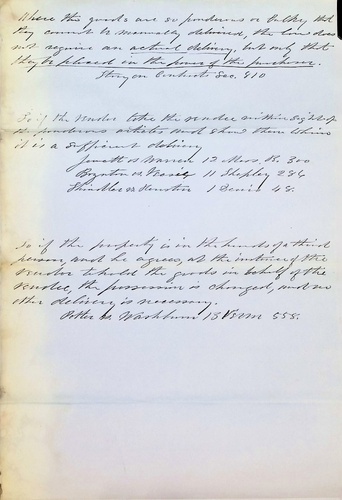 Where the goods are so ponderous or bulky that
they cannot be manually delivered, the law does
not require an actual delivery, but only that
they be placed in the power of the purchaser.
Story on Contracts Sec. 810
So if the vendor take the vendee within sight of
the ponderous articles and show them to him
it is a sufficient delivery
Jewett vs Warren 12 Mass. R. 300
Boynton vs Veazie 11 Shepley 286
Shindler vs Houston 1 Denio 48.
So if the property is in the hands of a third
person, and he agrees, at the instance of the
vendor to hold the goods in behalf of the
vendee, the possession is changed, and no
other delivery is necessary.
Potter vs. Washburn 13 Verm 558.